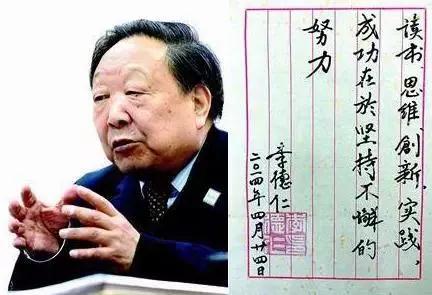 读书、思维、創新、实践，
成功在於坚持不懈的
努力
李德仁
二〇一四年四月廿四日